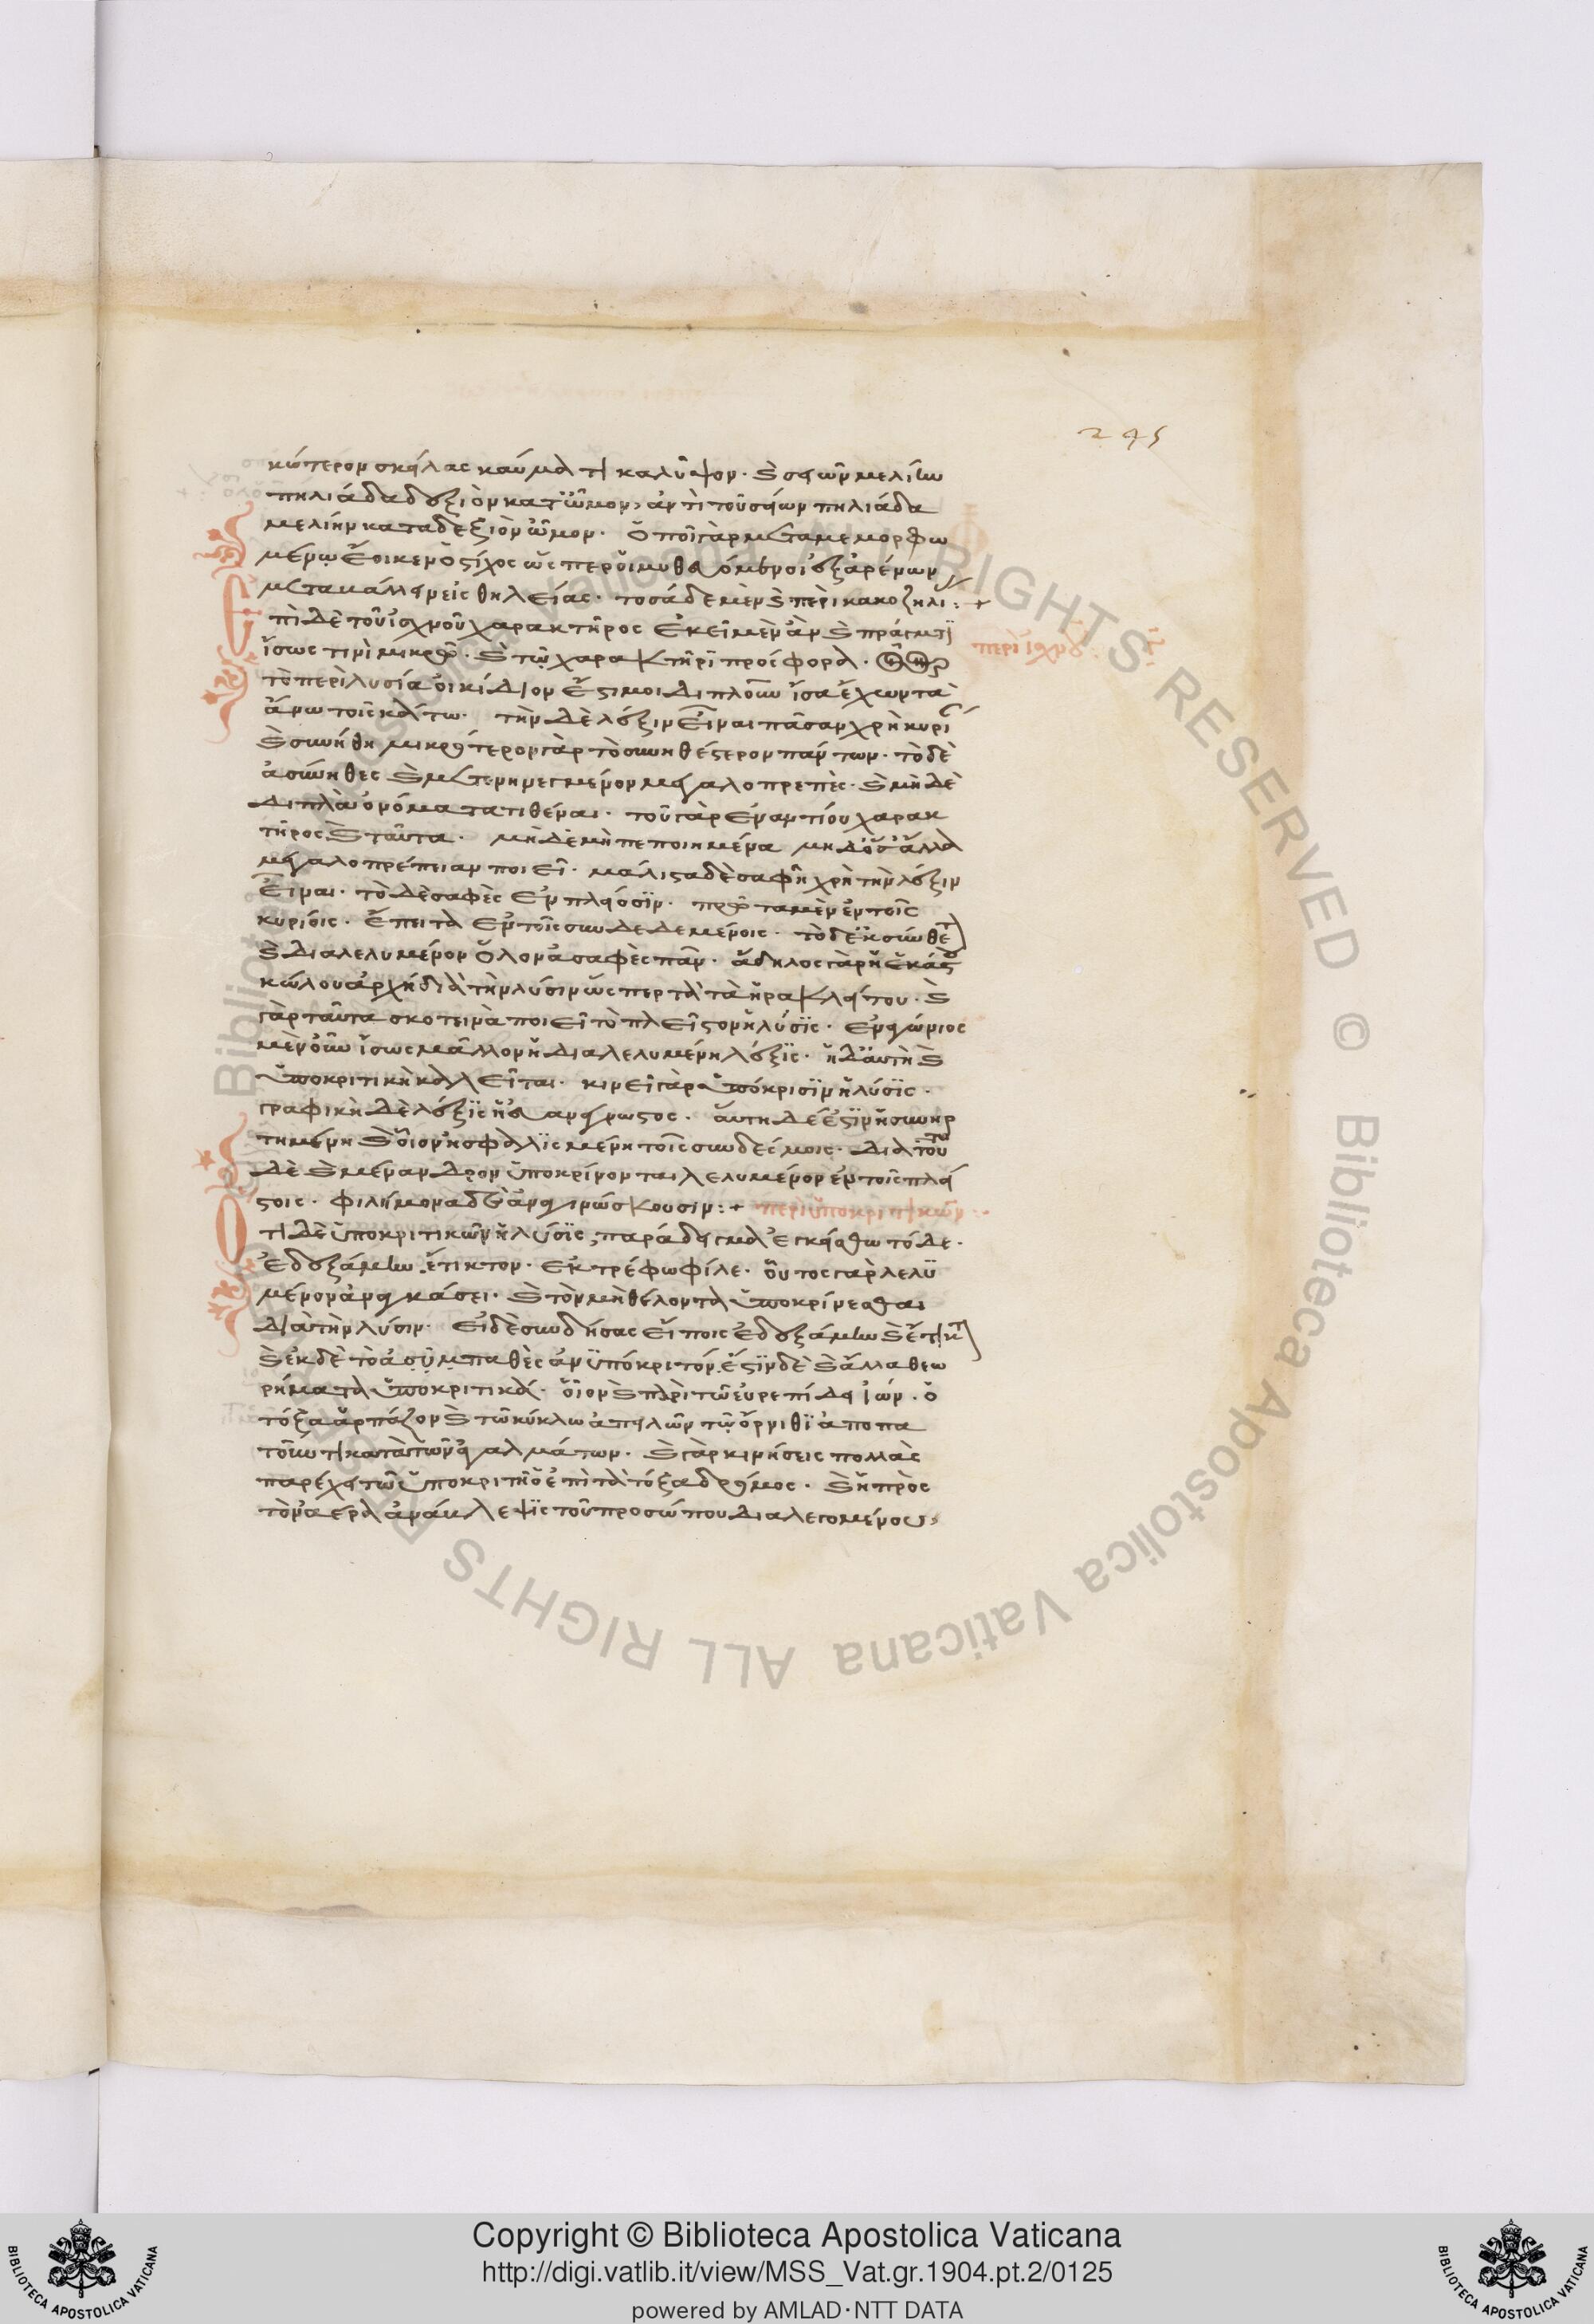 245
κώτερον σκέλας καύμα τι καλύψον· καὶ σείων μελίην
πηλιάδα δεξιὸν κατ' ὦμον, ἀντὶ τοῦ σείων πηλιάδα
μελίην κατὰ δεξιὸν ὦμον. ὁποῖ γὰρ μεταμεμορφω
μένω ἔοικεν ὁ στίχος ὥσπερ οἱ μυθευόμενοι ἐξ ἀρένων
μεταβάλλειν εἰς θηλείας. τοσάδε μὲν καὶ περὶ κακοζηλί :+
Ἐπὶ δὲ τοῦ ἰσχνοῦ χαρακτῆρος ἐκεῖ μὲν ἂν καὶ πράγματϊ
περὶ ἰσχνοῦ
ἴσως τινὶ μικρῶ. καὶ τῷ χαρακτῆρϊ πρόσφορα.
τὸ περὶ λυσία οἰκίδιον ἔστι μοι διπλοῦν ἴσα ἔχων τὰ
ἄνω τοῖς κάτω. τὴν δὲ λέξιν εἶναι πᾶσαν χρὴ κυρί
καὶ συνήθη μικρότερον γὰρ τὸ συνηθέστερον πάντων. τὸ δὲ
ἀσύνηθες καὶ μετενηνεγμένον μεγαλοπρεπὲς. καὶ μὴ δὲ
διπλὰ ὀνόματα τιθέναι. τοῦ γὰρ ἐναντίου χαρακ
τῆρος καὶ ταῦτα. μὴ δὲ μὴ πεποιημένα μηδ' ὅσ' ἄλλα
μεγαλοπρέπειαν ποιεῖ. μάλιστα δὲ σαφῆ χρὴ τὴν λέξιν
εἶναι. τὸ δὲ σαφὲς ἐν πλείοσϊν. πρῶτα μὲν ἐν τοῖς
κυρίοις. ἔπειτα ἐν τοῖς συνδεδεμένοις. τὸ δὲ ἀσύνθετ
καὶ διαλελυμένον ὅλον ἀσαφὲς πᾶν. ἄδηλος γὰρ ἡ ἑκάστου
κώλου ἀρχὴ διὰ τὴν λύσιν ὥσπερ τὰ τὰ ἡρακλείτου. καὶ
γὰρ ταῦτα σκοτεινὰ ποιεῖ τὸ πλεῖστον ἡ λύσϊς. ἐναγώνιος
μὲν οὖν ἴσως μᾶλλον ἡ διαλελυμένη λέξϊς. ἡ δ' αὐτὴ καὶ
ὑποκριτικὴ καλεῖται. κινεῖ γὰρ ὑπόκρισϊν ἡ λύσϊς.
γραφικὴ δὲ λέξϊς ἡ εὐανάγνωστος. αὕτη δέ ἐστϊν ἡ συνηρ
τημένη καὶ οἷον ἠσφαλϊσμένη τοῖς συνδέσμοις. διὰ τοῦτο
δὲ καὶ μένανδρον ὑποκρίνονται λελυμένον ἐν τοῖς πλεί
στοις. φιλήμονα δὲ ἀναγινώσκουσιν:+ περὶ ὑποκριτικῶν:
Ὅτι δὲ ὑποκριτικῶν ἡ λύσϊς, παράδειγμα ἐγκείσθω τόδε.
ἐδεξάμην. ἔτικτον. ἐκτρέφω φίλε. οὕτος γὰρ λελυ
μένον ἀναγκάσει. καὶ τὸν μὴ θέλοντα ὑποκρίνεσθαι
διὰ τὴν λύσιν. εἰ δὲ συνδήσας εἴποις ἐδεξάμην καὶ ἔτικτ
καὶ ἐκ δὲ τὸ ἀσυμπαθὲς ἀνυπόκριτόν. ἔστϊν δὲ καὶ ἄλλα θεω
ρήματα ὑποκριτικά. οἷον καὶ παρὰ τῶ εὐρεπίδει ἰών. ὁ
τόξα ἁρπάζον καὶ τῶ κύκνω ἀπειλῶν τῷ ὄρνιθϊ ἀποπα
τοῦντι κατὰ τῶν ἀγαλμάτων. καὶ γὰρ κινήσεις πολλὰς
παρέχει τῶ ὑποκριτῆ ὁ ἐπὶ τὰ τόξα δρόμος. καὶ ἡ πρὸς
τὸν ἀέρα ἀνάβλεψϊς τοῦ προσώπου διαλεγομένου,
Copyright © Biblioteca Apostolica Vaticana
http://digi.vatlib.it/view/MSS_Vat.gr.1904.pt.2/0125
powered by AMLAD·NTT DATA
BIBLIOTECA APOSTOLICA VATICANA
BIBLIOTECA APOSTOLICA VATICANA
Biblioteca Apostolica Vaticana ALL RIGHTS RESERVED © Biblioteca Apostolica Vaticana ALL RIGHTS RESERVED